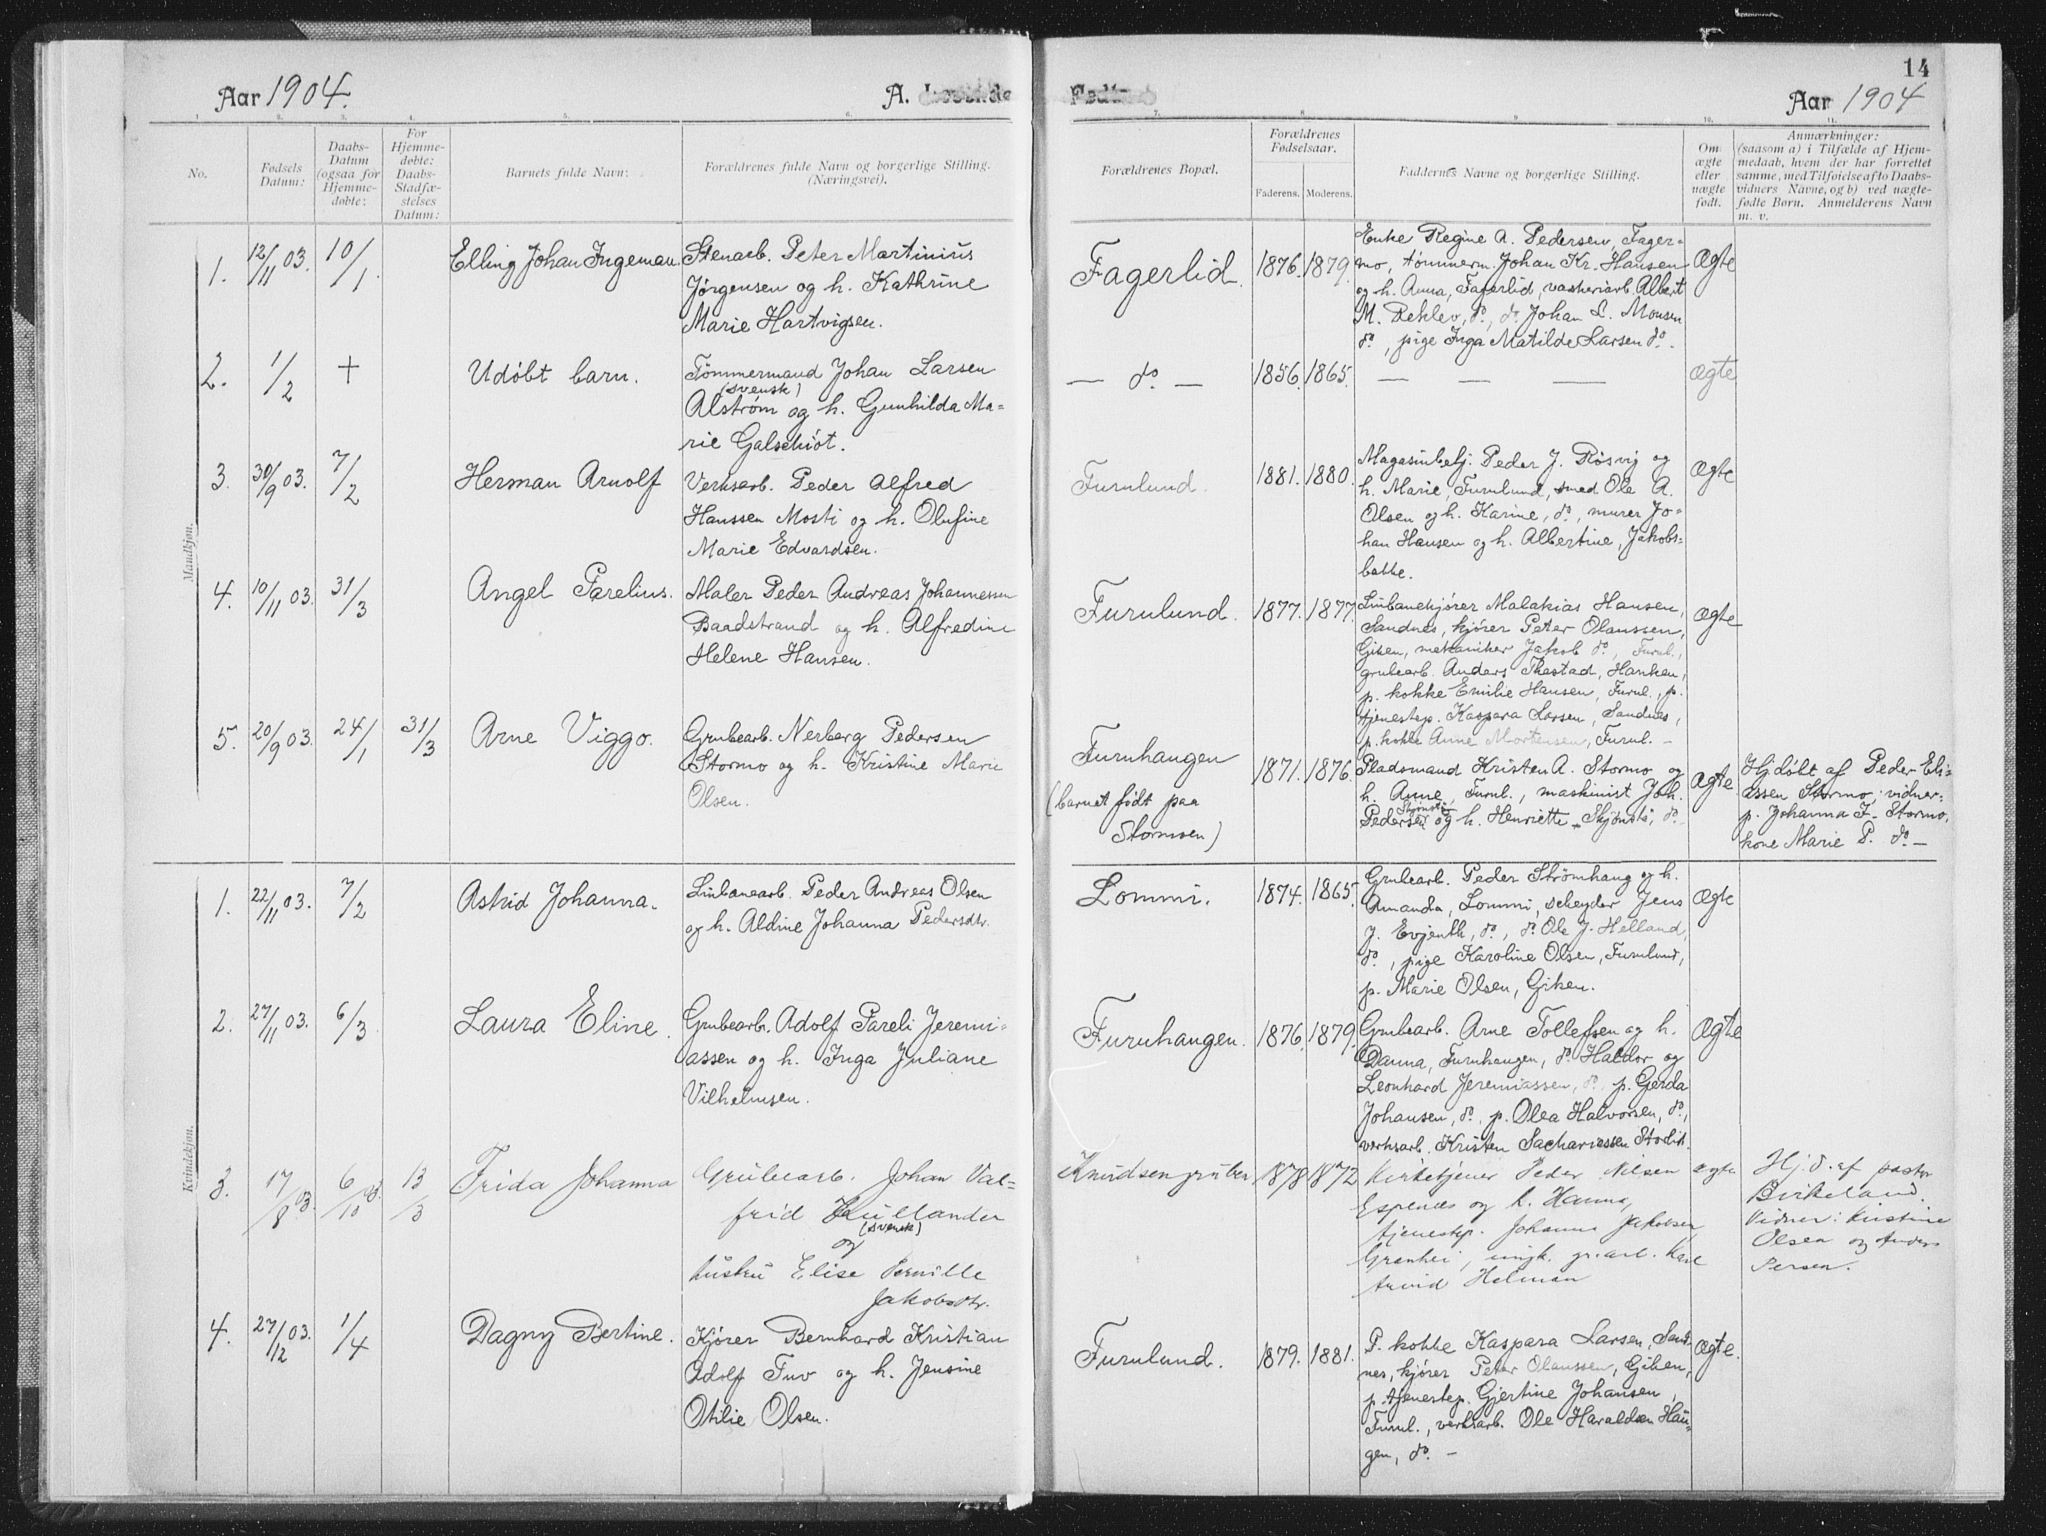 Aar 1904.
A.
No.
Fødsels Datum:
Daabs-Datum (ogsaa for Hjemme-døbte:
For Hjemme-døbte: Daabs-Stadfæ-stelses Datum:
Barnets fulde Navn:
Forældrenes fulde Navn og borgerlige Stilling. (Næringsvei).
Mandkjøn.
1.
12/11 03.
10/1.
Elling Johan Ingeman.
Stenarb. Peter Martinius
Jørgensen og h. Kathrine
Marie Hartvigsen.
2.
1/2
+
Udøbt barn.
Tømmermand Johan Larsen
(svensk)
Alstrøm og h. Gunhilda Ma=
rie Galschiøt.
3.
30/9 03.
7/2
Herman Arnolf
Verksarb. Peder Alfred
Hanssen Mosti og h. Olufine
Marie Edvardsen.
4.
10/11 03.
31/3
Angel Parelius.
Maler Peder Andreas Johannessen
Baadstrand og h. Alfredine
Helene Hansen.
5.
20/9 03.
24/1
31/3
Arne Viggo.
Grubearb. Nerberg Pedersen
Stormo og h. Kristine Marie
Olsen.
Kvindekjøn.
1.
22/11 03.
7/2
Astrid Johanna.
Linbanearb. Peder Andreas Olsen
og h. Aldine Johanna Pedersdtr.
2.
27/11 03.
6/3
Laura Eline.
Grubearb. Adolf Pareli Jeremi-
assen og h. Inga Juliane
Vilhelmsen.
3.
17/8 03.
6/10 03.
13/3
Frida Johanna
Grubearb. Johan Val=
frid Kullander
(svensk)
og
hustru Elise Pernille
Jakobsdtr.
4.
27/12 03.
1/4
Dagny Bertine.
Kjører Bernhard Kristian
Adolf Fuv og h. Jensine
Otilie Olsen.
14
Fødte
Aar 1904
Forældrenes Bopæl.
Forældrenes Fødselsaar.
Faderens. Moderens.
Faddernes Navne og borgerlige Stilling.
Om ægte eller nægte født.
Anmærkninger:
(saasom a) i Tilfælde af Hjem-
medaab, hvem der har forrettet
samme, med Tilføielse af to Daabs-
vidners Navne, og b) ved nægte-
fødte Børn. Anmelderens Navn
m. v.
Fagerlid.
1876. 1879.
Enke Regine A. Pedersen, Fager=
mo, tømmerm. Johan Kr. Hansen
og h. Anna, Fagerlid, vaskeriarb. Albert
M. Rehlev, do., do. Johan L. Monsen
do., pige Inga Matilde Larsen do.
Ægte
— do. —
1856. 1865.
— — —
Ægte
Furulund.
1881. 1880.
Magasinbetj. Peder J. Røsvig og
h. Marie, Furulund, smed Ole A.
Olsen og h. Karine, do., murer Jo=
han Hansen og h. Albertine, Jakobs=
bakke.
Ægte
Furulund.
1877. 1877.
Linbanekjører Malakias Hansen,
Sandnes, kjører Peter Olaussen,
Giken, mekaniker Jakob do., Furul.,
grubearb. Anders Thestad, Hanken,
p. kokke Emilie Hansen, Furul., p.
tjenestep. Kaspara Larsen, Sandnes,
p. kokke Anne Mortensen, Furul. —
Ægte
Furuhaugen
(barnet født paa
Stormoen)
1871. 1876.
Pladsmand Kristen A. Stormo og
h. Anne, Furul., maskinist Joh.
Pedersen og h. Henriette Skjønstå, do. —
Ægte
Hj.døbt af Peder Eli=
assen Stormo; vidner:
p. Johanna J. Stormo,
kone Marie P. do. —
Lommi.
1874. 1865.
Grubearb. Peder Strømhaug og h.
Amanda, Lommi, scheyder Jens
J. Evjenth, do., do. Ole J. Helland,
do., pige Karoline Olsen, Furulund,
p. Marie Olsen, Giken.
Ægte
Furuhaugen.
1876. 1879.
Grubearb. Arne Tollefsen og h.
Danna, Furuhaugen, do. Haldor og
Leonhard Jeremiassen, do., p. Gerda
Johansen, do., p. Olea Halvorsen, do.,
verksarb. Kristen Sachariassen
Ægte
Knudsengruben
1878 1872
Kirketjener Peder Nilsen
Espenes og h. Hanna,
tjenestep. Johanna Jakobsen,
Granhei, ungk. gr.arb. Karl
Arvid Helman
ægte
Hj.d. af pastor
Birkeland.
Vidner: Kristine
Olsen og Anders
Persen.
Furulund.
1879. 1881.
P. kokke Kaspara Larsen, Sand-
nes, kjører Peter Olaussen, Giken,
p. tjenestep. Gjertine Johansen,
Furul., verksarb. Ole Haraldsen Hau=
gen, do. —
Ægte.